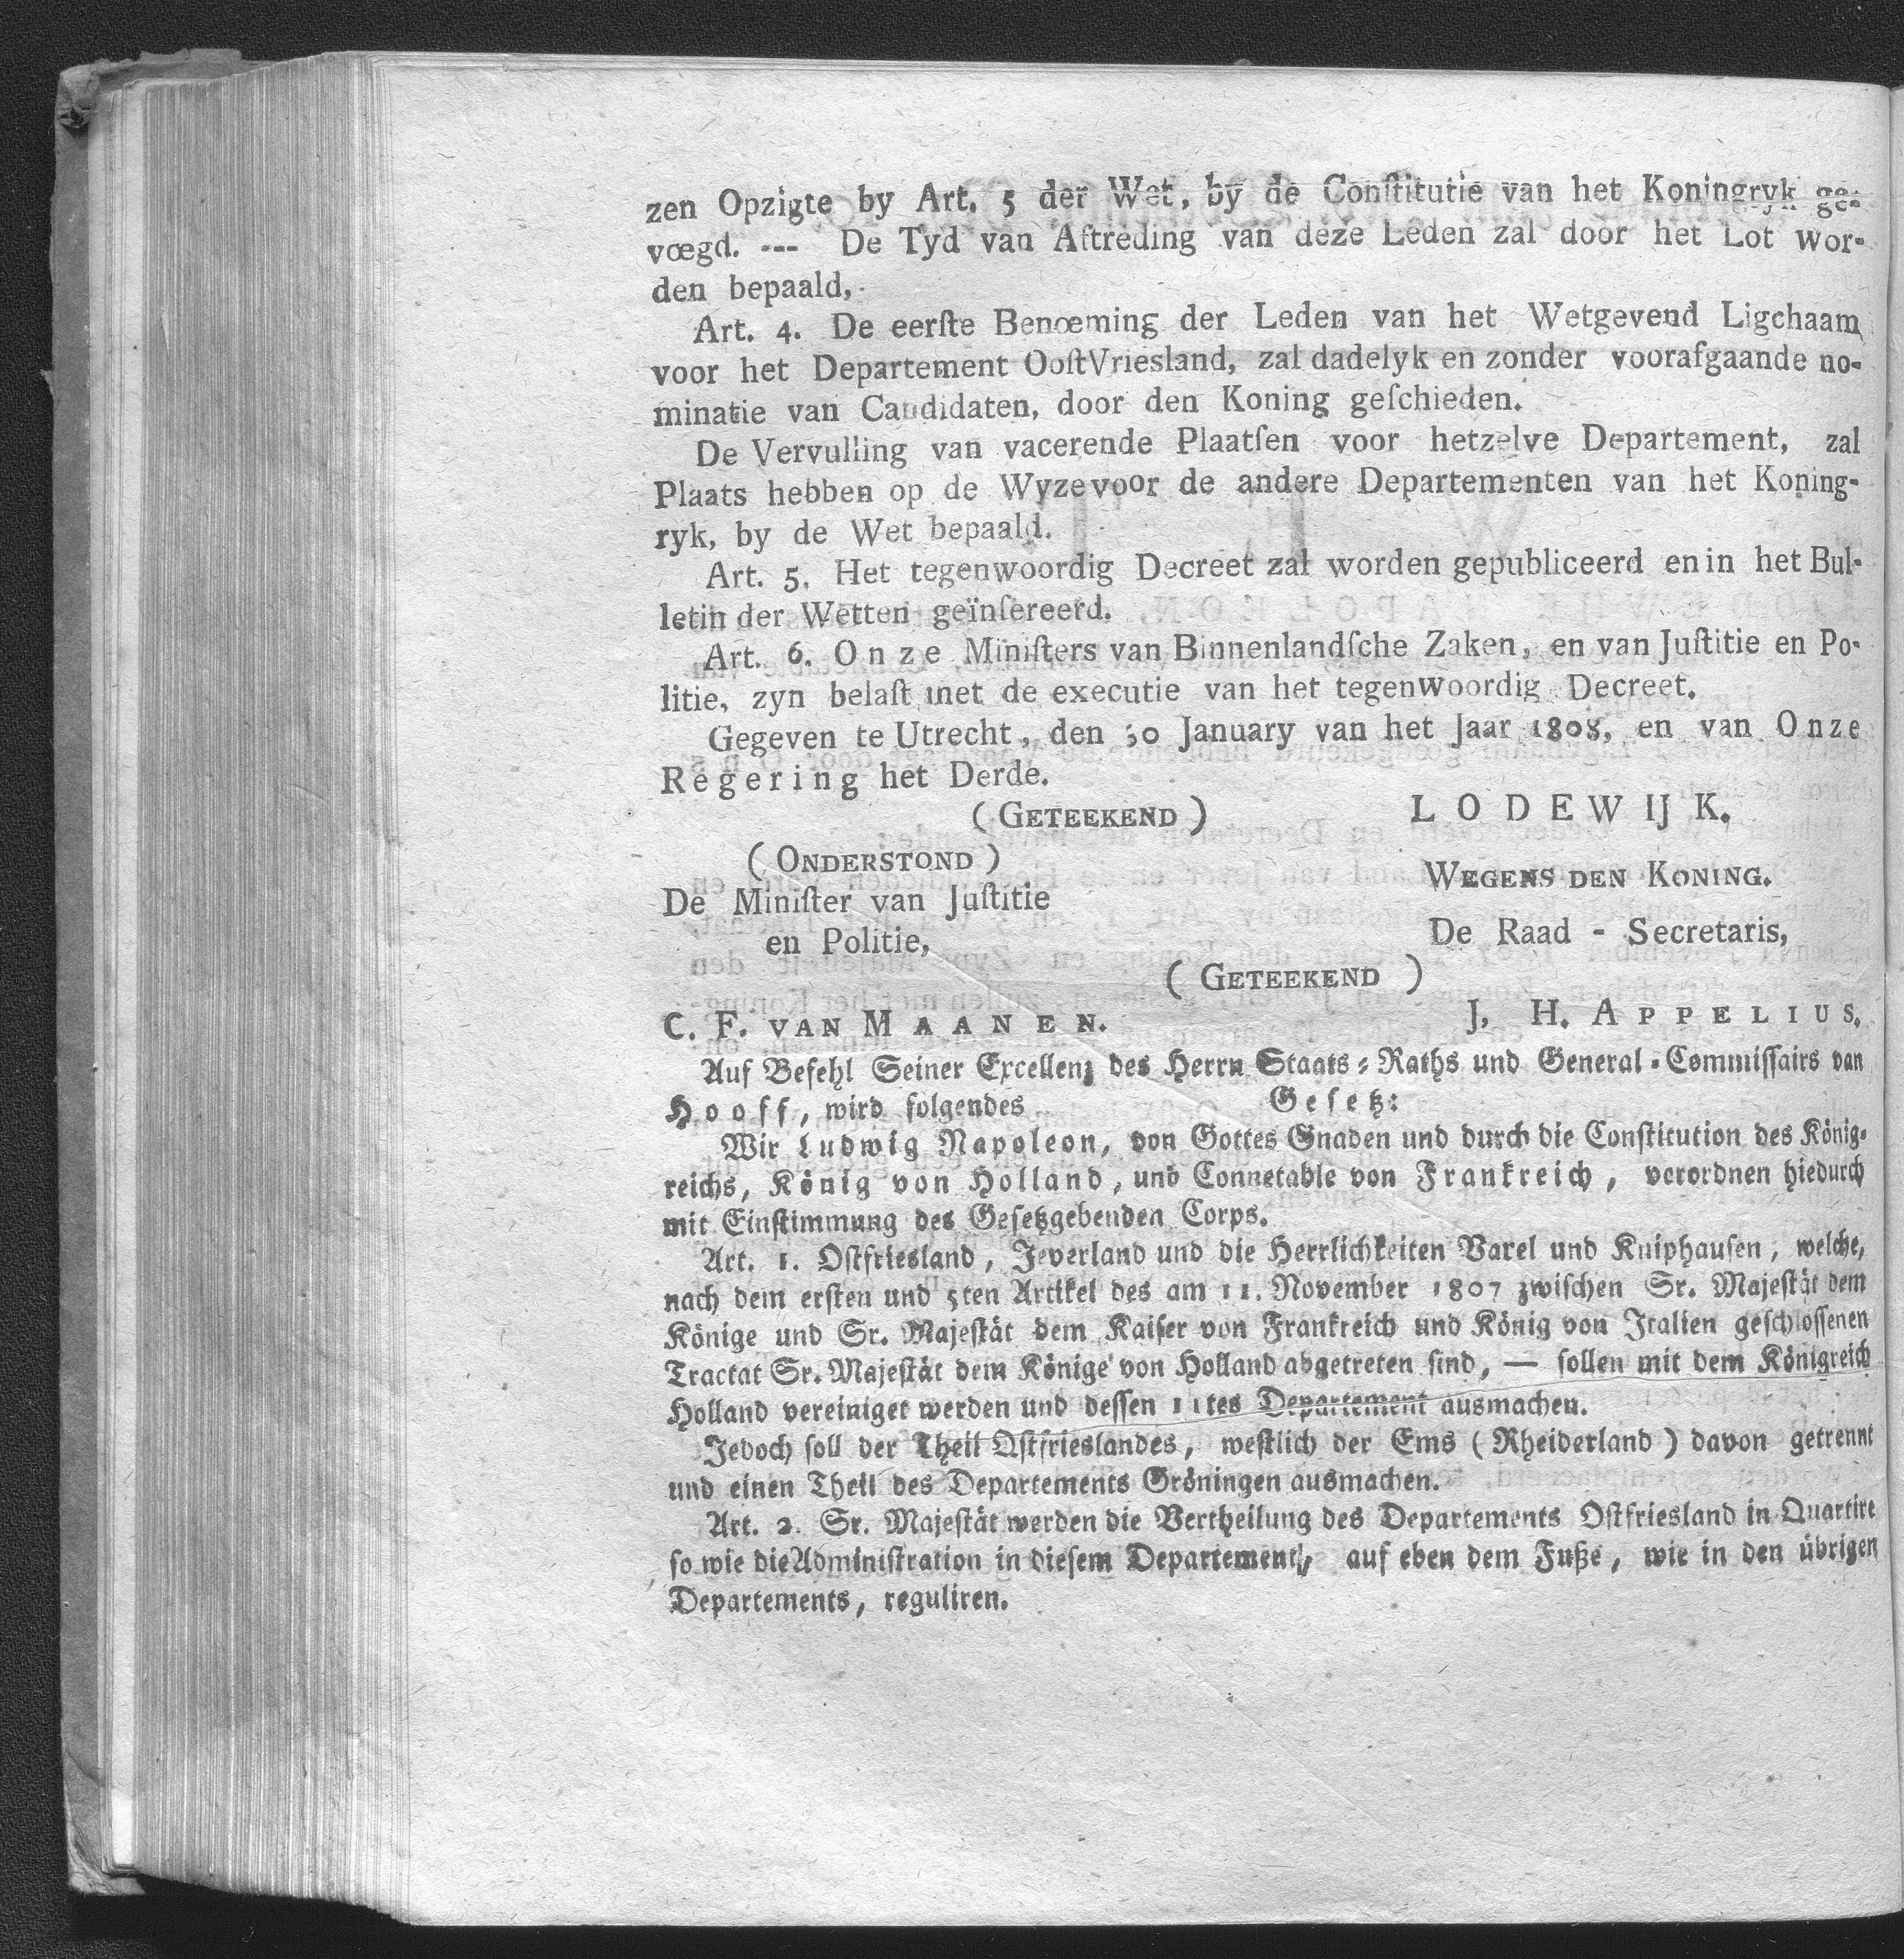 zen Opzigte by Art. 5 der Wet, by de Conſtitutie van het Koningryk ge-
vœgd. --- De Tyd van Aftreding van deze Leden zal door het Lot wor-
den bepaald,
Art. 4. De eerſte Benœming der Leden van het Wetgevend Ligchaam
voor het Departement OoſtVriesland, zal dadelyk en zonder voorafgaande no-
minatie van Candidaten, door den Koning geſchieden.
De Vervulling van vacerende Plaatſen voor hetzelve Departement, zal
Plaats hebben op de Wyze voor de andere Departementen van het Koning-
ryk, by de Wet bepaald.
Art. 5. Het tegenwoordig Decreet zal worden gepubliceerd en in het Bul-
letin der Wetten geïnſereerd.
Art. 6. Onze Miniſters van Binnenlandſche Zaken, en van Juſtitie en Po-
litie, zyn belaſt met de executie van het tegenwoordig Decreet.
Gegeven te Utrecht, den 30 January van het Jaar 1808, en van Onze
Regering het Derde.
(GETEEKEND) LODEWIJK.
(ONDERSTOND)
WEGENS DEN KONING.
De Miniſter van Juſtitie
en Politie,
De Raad - Secretaris,
(GETEEKEND)
C. F. VAN MAANEN. J. H. APPELIUS.
Auf Befehl Seiner Excellenz des Herrn Staats-Raths und General-Commiſſairs van
Hooff, wird folgendes Geſetz:
Wir Ludwig Napoleon, von Gottes Gnaden und durch die Conſtitution des König-
reichs, König von Holland, und Connetable von Frankreich, verordnen hiedurch
mit Einſtimmung des Geſetzgebenden Corps.
Art. 1. Oſtfriesland, Jeverland und die Herrlichkeiten Varel und Kniphauſen, welche,
nach dem erſten und 5ten Artikel des am 11. November 1807 zwiſchen Sr. Majeſtät dem
Könige und Sr. Majeſtät dem Kaiſer von Frankreich und König von Italien geſchloſſenen
Tractat Sr. Majeſtät dem Könige von Holland abgetreten ſind, — ſollen mit dem Königreich
Holland vereiniget werden und deſſen 11tes Departement ausmachen.
Jedoch ſoll der Theil Oſtfrieslandes, weſtlich der Ems (Rheiderland) davon getrennt
und einen Theil des Departements Gröningen ausmachen.
Art. 2. Sr. Majeſtät werden die Vertheilung des Departements Oſtfriesland in Quartire
ſo wie die Adminiſtration in dieſem Departement, auf eben dem Fuße, wie in den übrigen
Departements, reguliren.